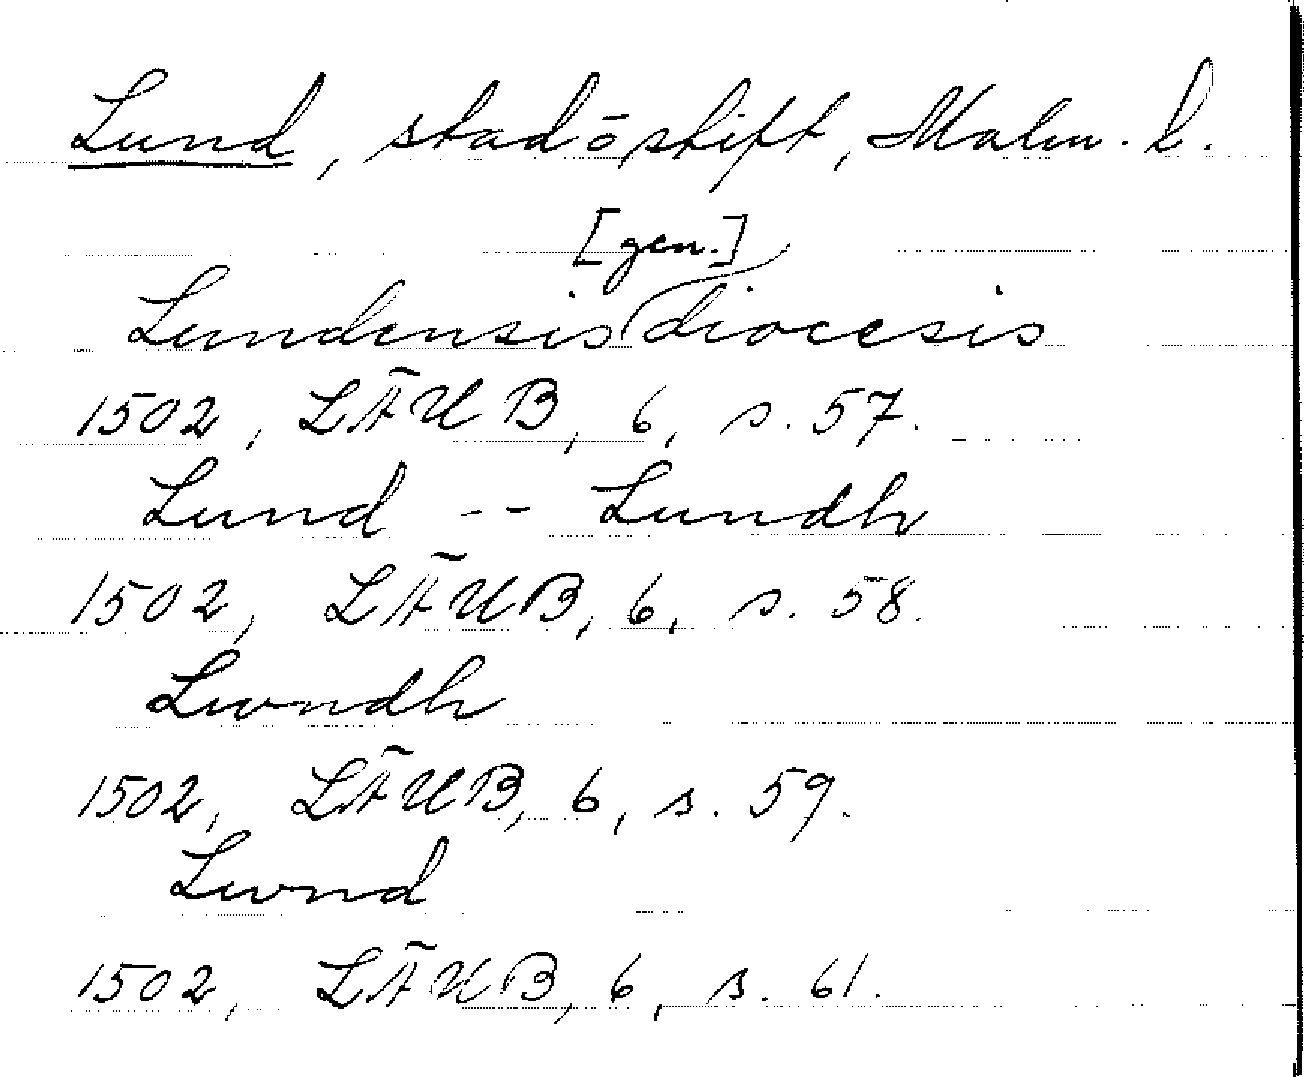 Lund, stad o stift, Malm. l.
[gen.]
Lundensis diocesis
1502, LÄUB, 6, s. 57.
Lund -- Lundh
1502, LÄUB, 6, s. 58.
Lwndh
1502, LÄUB, 6, s. 59.
Lwnd
1502, LÄUB, 6, s. 61.